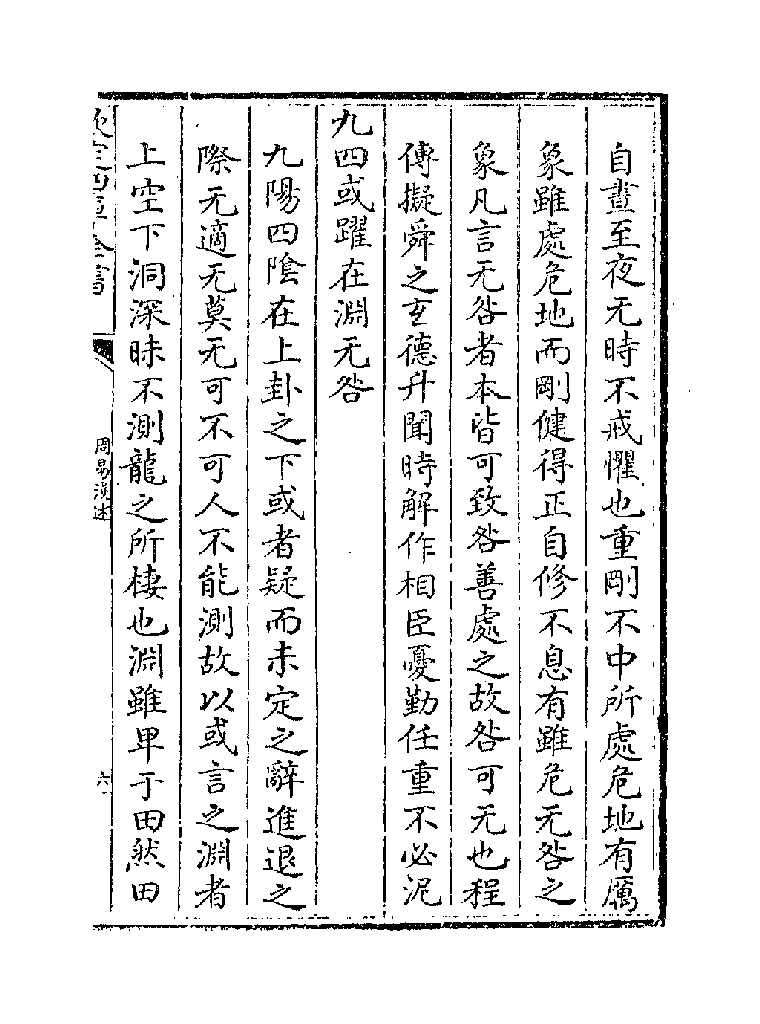 自晝至夜无時不戒懼也重剛不中所處危地有厲
象雖處危地而剛健得正自修不息有雖危无咎之
象凡言无咎者本皆可致咎善處之故咎可无也程
傳擬舜之玄德升聞時解作相臣憂勤任重不必泥
九四或躍在淵无咎
九陽四陰在上卦之下或者疑而未定之辭進退之
際无適无莫无可不可人不能測故以或言之淵者
上空下洞深昧不測龍之所棲也淵雖卑于田然田
欽定四庫全書
周易淺述
六